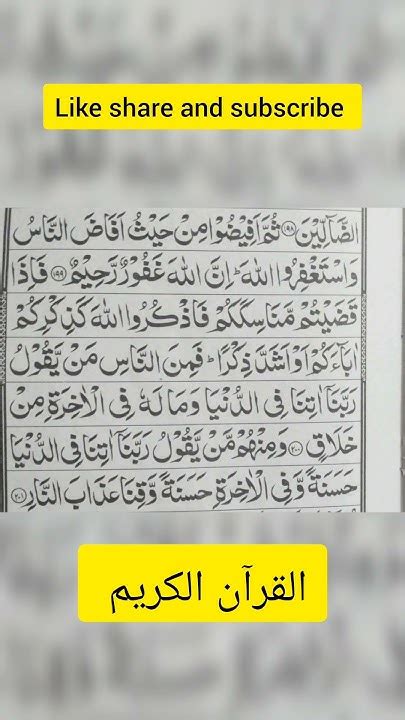 Like share and subscribe
الضَّآلِّيْنَ ﴿۱۹۸﴾ ثُمَّ اَفِيْضُوْا مِنْ حَيْثُ اَفَاضَ النَّاسُ
وَاسْتَغْفِرُوا اللّٰهَ ؕ اِنَّ اللّٰهَ غَفُوْرٌ رَّحِيْمٌ ﴿۱۹۹﴾ فَاِذَا
قَضَيْتُمْ مَّنَاسِكَكُمْ فَاذْكُرُوا اللّٰهَ كَذِكْرِكُمْ
اٰبَآءَكُمْ اَوْ اَشَدَّ ذِكْرًا ؕ فَمِنَ النَّاسِ مَنْ يَّقُوْلُ
رَبَّنَاۤ اٰتِنَا فِى الدُّنْيَا وَمَا لَهٗ فِى الْاٰخِرَةِ مِنْ
خَلَاقٍ ﴿۲۰۰﴾ وَمِنْهُمْ مَّنْ يَّقُوْلُ رَبَّنَاۤ اٰتِنَا فِى الدُّنْيَا
حَسَنَةً وَّفِى الْاٰخِرَةِ حَسَنَةً وَّقِنَا عَذَابَ النَّارِ ﴿۲۰۱﴾
القرآن الكريم